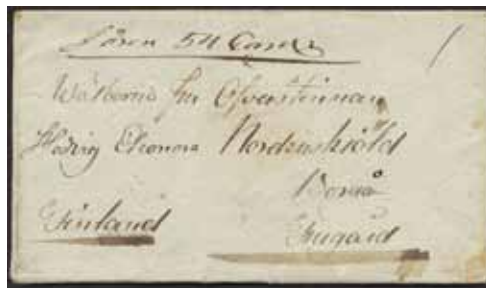 Wälborne fru Öfverstinnan
Hedvig Eleonora Nordenskiöld
Borgå
Finland Frugård